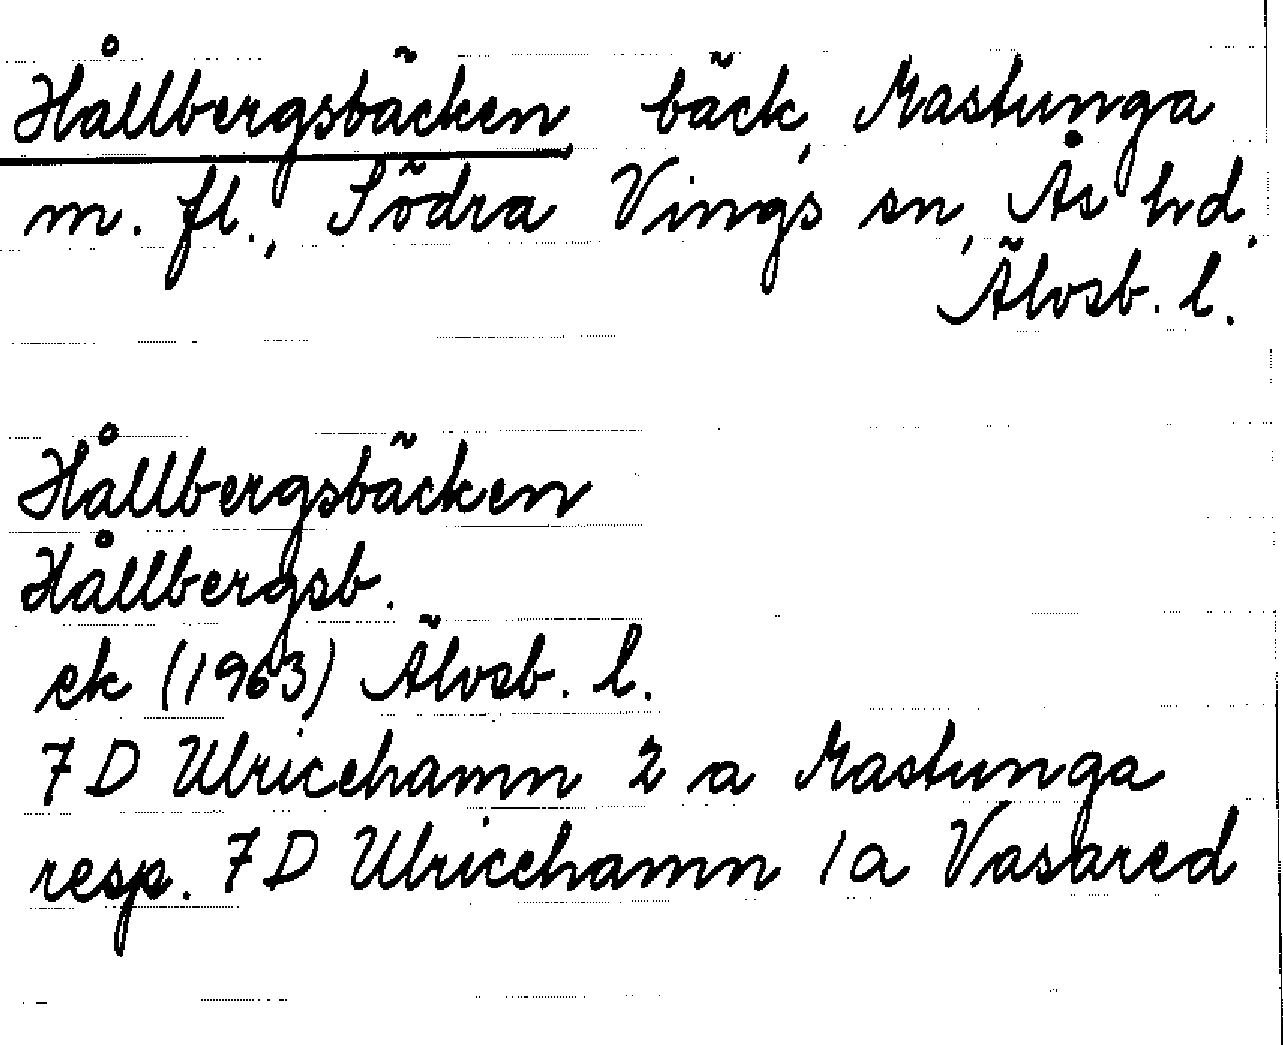 Hållbergsbäcken bäck, Mastunga
m. fl., Södra Vings sn, Ås hd,
Älvsb. l.
Hållbergsbäcken
Hållbergsb.
ek (1963) Älvsb. l.
7D Ulricehamn 2 a Mastunga
resp. 7D Ulricehamn 1a Vasared